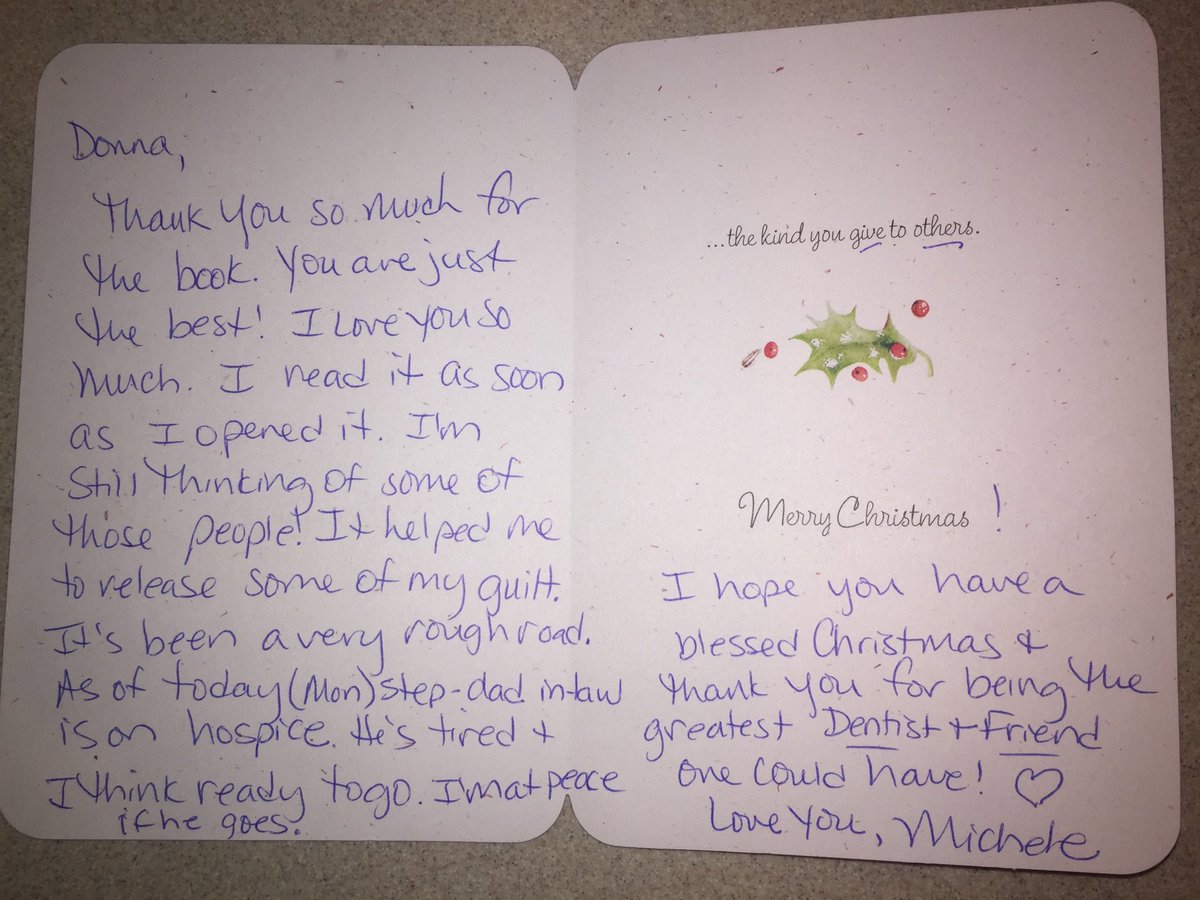 Donna,
Thank you so much for
the book. You are just
the best! I love you so
much. I read it as soon
as I opened it. I'm
still thinking of some of
those people! It helped me
to release some of my guilt.
It's been a very rough road.
As of today (Mon) step-dad inlaw
is on hospice. He's tired +
I think ready to go. I'm at peace
if he goes.
...the kind you give to others.
Merry Christmas !
I hope you have a
blessed Christmas &
thank you for being the
greatest Dentist + Friend
one could have! ♡
Love you, Michele